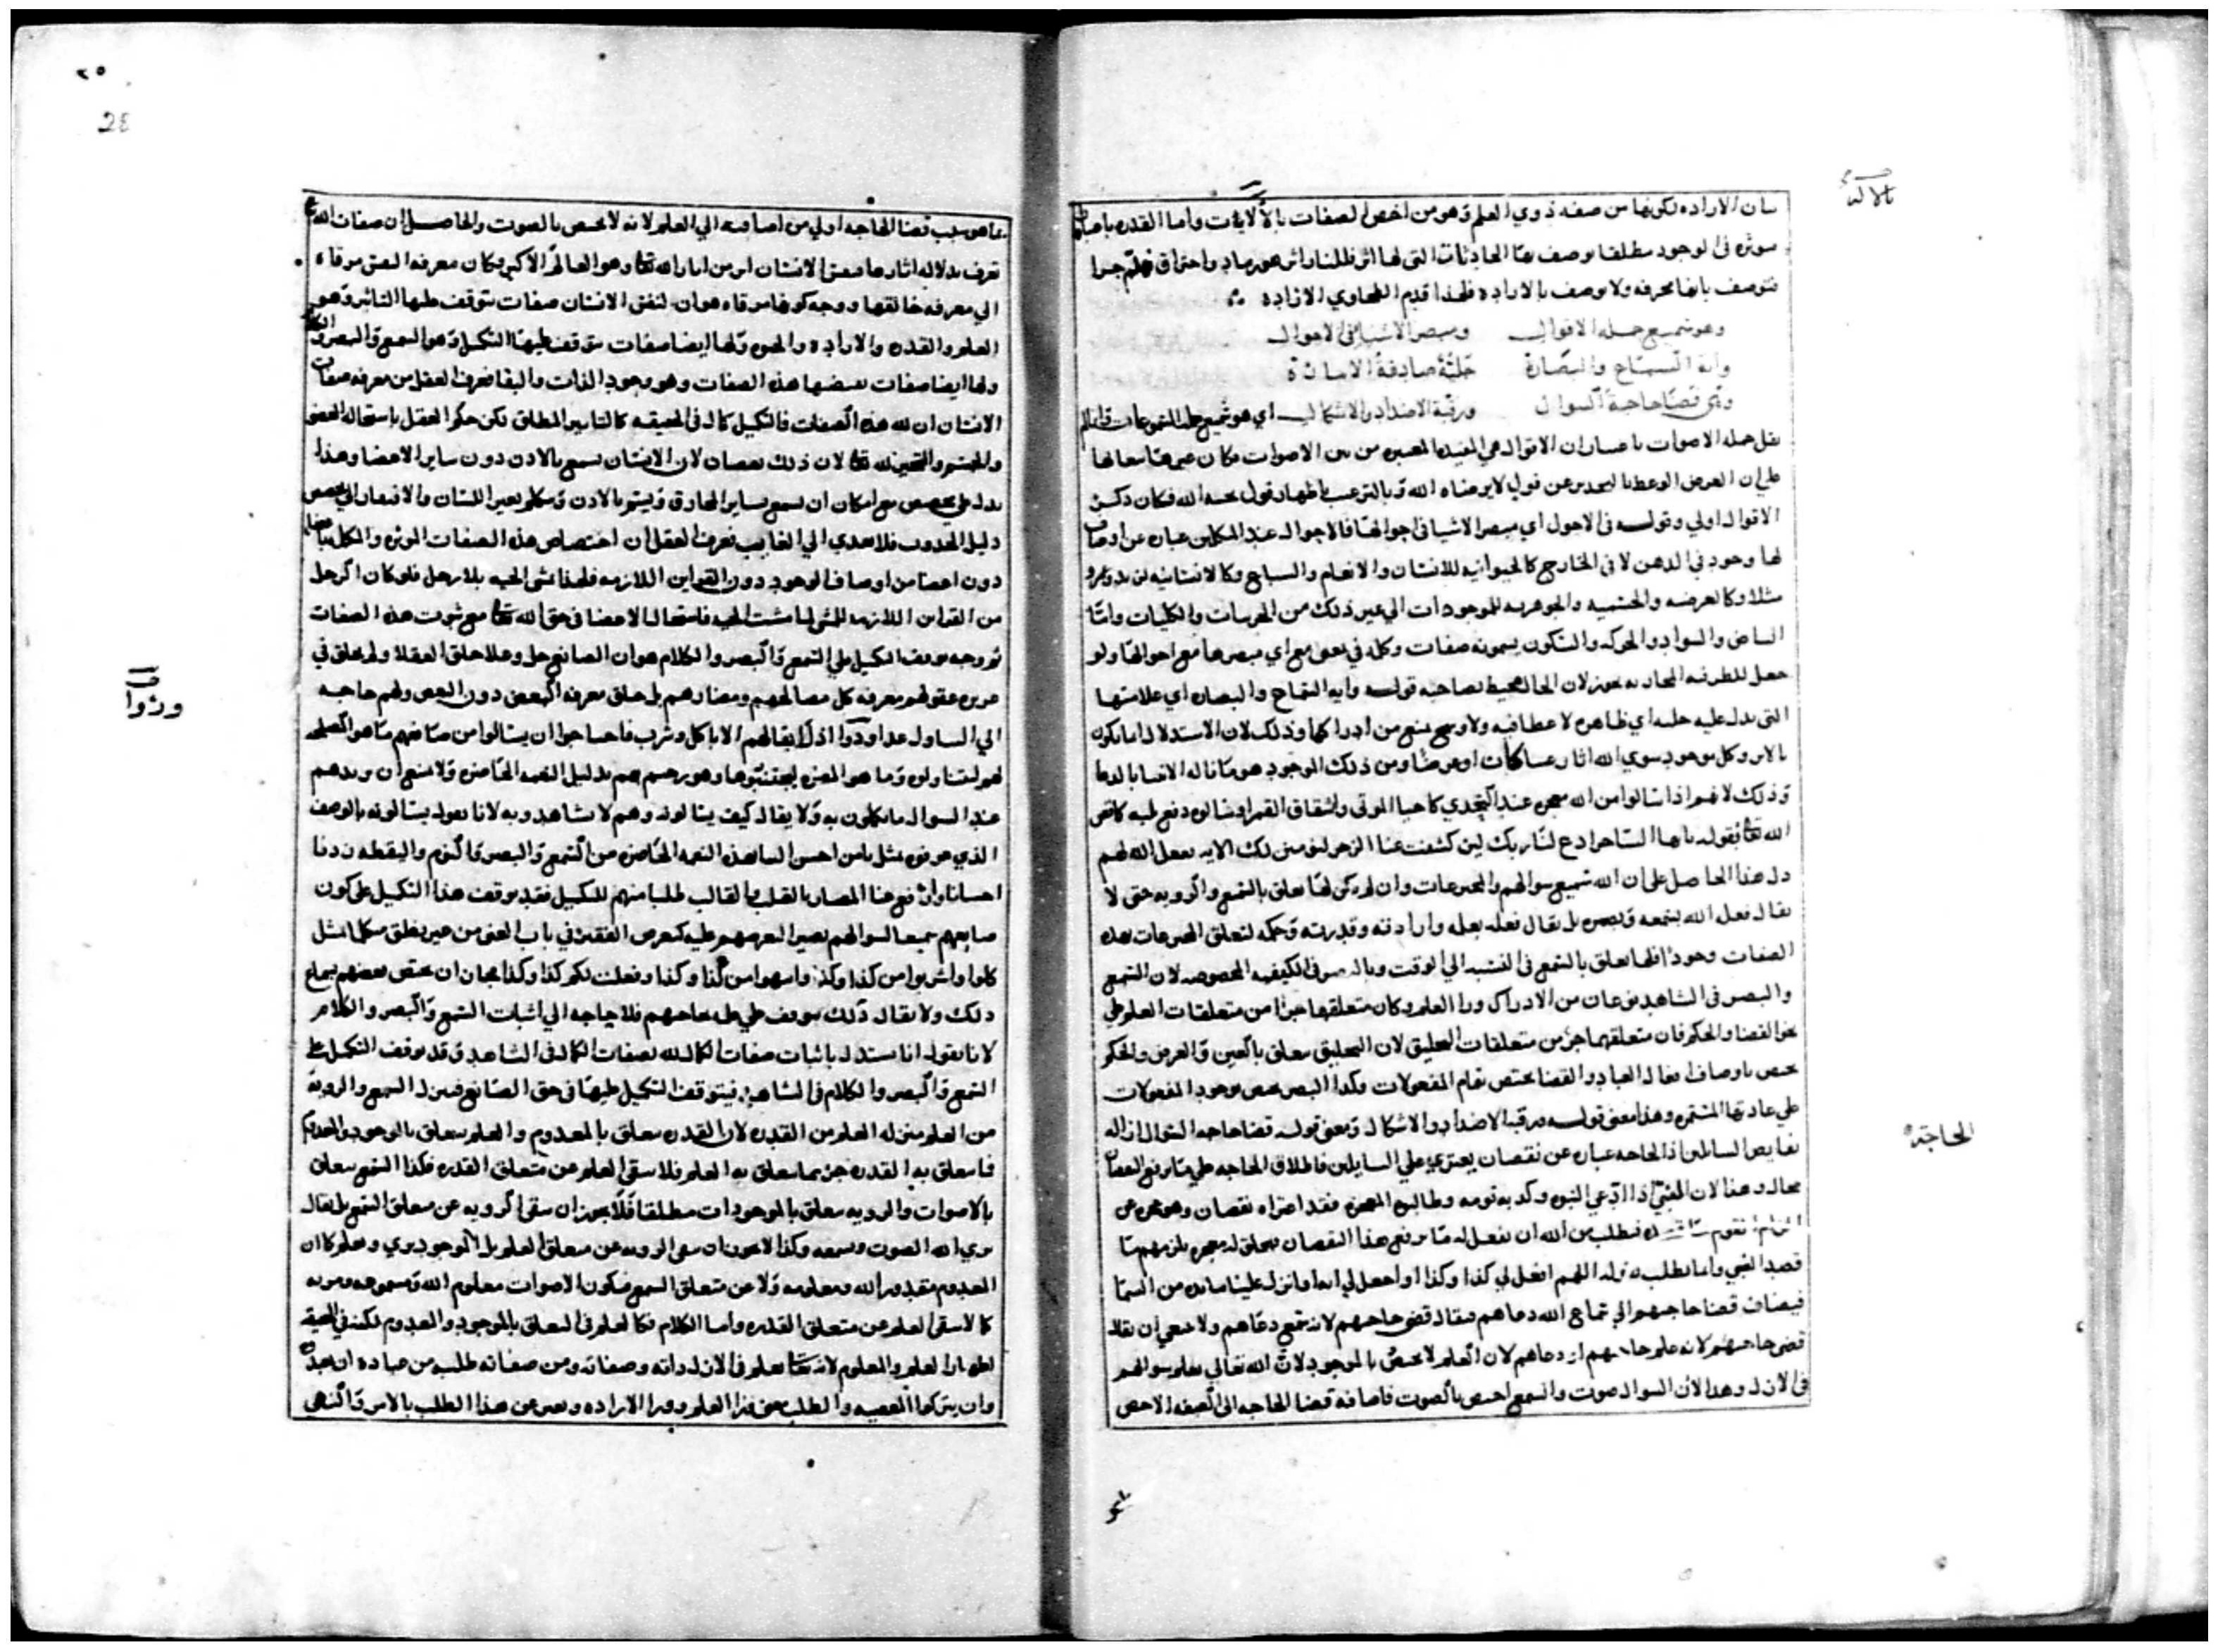 بيان الارادة لكونها من صفة ذوي العلم وهو من اخص الصفات بالالاهيات واما القدرة باعتبارها
موثرة في الوجود مطلقا يوصف بها الحادثات التي لها اثر فللنار اثر هو رماد واحتراق فلم جرا
فتوصف بانها محرقة ولا يوصف بالارادة فلهذا قدم الطحاوي الارادة
وهو سميع جملة الاقوال ومبصر الاشيا في الاحوال
واية السماع والبصارة جلية صادقة الامارة
وفي قضا حاجة السوال ورقبة الاضداد والاشكال اي هو سميع جملة المسموعات وانما لم
يقل جملة الاصوات باعتبار ان الاقوال هي المفيدة المعتبرة من بين الاصوات فكان
على ان الغرض الوعظ بالتحذير عن قول لا يرضاه الله وبالترغيب باظهار قول يحبه الله فكان ذكر
الاقوال اولي وقوله في الاحول اي مبصر الاشيا في احوالها فالاحوال عند المتكلمين عبارة عن اوصاف
لها وجود في الذهن لا في الخارج كالحيوانية للانسان والانعام والسباع وكالانسانية لزيد وعمرو
مثلا وكالعرضية والجنسية والجوهرية للموجودات الي غير ذلك من الجزيات والكليات واما
البياض والسواد والحركة والسكون يسمونه صفات وكلمة في بمعنى مع اي مبصرها مع احوالها ولو
جعل للظرفية المجازية يجوز لان الحال محيط بصاحبه قوله واية السماع والبصارة اي علامتها
التي يدل عليه جلية اي ظاهرة لا غطا فيه ولا وسخ يمنع من ادراكها وذلك لان الاستدلال انما يكون
بالاثر وكل موجود سوي الله اثار عينا كانت او عرضا ومن ذلك الموجود هو ما ناله الانبيا بالدعا
وذلك لانهم اذا سالوا من الله معجزة عند التحدي كاحيا الموتى وانشقاق القمر او سالوه دفع بلية كما قص
الله تعالى بقوله يا ايها الساحر ادع لنا ربك لين كشفت عنا الرجز لنومنن لك الاية ففعل الله لهم
دل هذا الحاصل على ان الله سميع سوالهم والمخترعات وان لم يكن لها تعلق بالسمع والروية حتى لا
يقال فعل الله بسمعه وبصره بل يقال فعله بعلمه وارادته وقدرته وحكمه لتعلق المخترعات بهذه
الصفات وجودا فلها تعلق بالسمع في النسبة الي الوقت وبالبصر في الكيفية المخصوصة لان السمع
والبصر في الشاهد نوعان من الادراك ورا العلم وكان متعلقهما جزا من متعلقات العلم علي
نحو القضا والحكم فان متعلقهما جز من متعلقات التخليق لان التخليق يتعلق بالعين والعرض والحكم
يختص باوصاف افعال العباد والقضا يختص تمام المفعولات وكذا البصر يختص بوجود المفعولات
علي عادتها المستمرة وهذا معنى قوله ورقبة الاضداد والاشكال ومعنى قوله قضا حاجة السوال ازالة
نقايص السايلين اذ الحاجة عبارة عن نقصان يعتري علي السايلين فاطلاق الحاجة علي ما يرفع النقصان
مجاز وهذا لان النبي اذا ادعي النبوة وكذبه قومه وطالبوا المعجزة فقد اعتراه نقصان وهو عجزه عن
الزام قومه فطلب من الله ان يفعل له ما يرفع هذا النقصان فيخلق له معجزة يلزمهم ما
قصد النبي وانما يطلب بقوله اللهم افعل لي كذا وكذا او اجعل لي اية او انزل علينا مايدة من السما
فيضاف قضا حاجتهم الي سماع الله دعاهم فيقال قضى حاجتهم لانه سمع دعاهم ولا ينبغي ان يقال
قضى حاجتهم لانه علم حاجتهم او دعاهم لان العلم لا يختص بالموجود لان الله تعالي يعلم سوالهم
في الازل وهذا لان السوال صوت والسمع اخص بالصوت فاضافة قضا الحاجة الى الصفة الاخص
بالالهية
الحاجة
٢٥
28
بما هو سبب قضا الحاجة اولي من اضافته الي العلم لانه لا يختص بالصوت والحاصل ان صفات الله
تعرف بدلالة اثارها فنفس الانسان اثر من اثار الله تعالى وهو العالم الاكبر وكان معرفة النفس مرقاة
الي معرفة خالقها ووجه كونها مرقاة هو ان لنفس الانسان صفات يتوقف عليها التاثير وهو
العلم والقدرة والارادة والحيوة ولها ايضا صفات يتوقف عليها التكميل وهو السمع والبصر والكلام
ولها ايضا صفات بعضها هذه الصفات وهو وجود الذات والبقا فعرف العقل من معرفة صفات
الانسان ان لله هذه الصفات فالتكميل كمال في الحقيقة كالتاثير المطلق لكن حكم العقل باستحالة العضو
والجسم والتحيز لله تعالى لان ذلك نقصان لان الانسان يسمع بالاذن دون ساير الاعضا وهذا
يدل علي مخصص مع امكان ان يسمع بساير الجوارح ويبصر بالاذن ويتكلم بغير اللسان والافتقار الي مخصص
دليل الحدوث فلا يتعدي الي الغايب فعرف العقل ان اختصاص هذه الصفات الموثرة والمكملة باعضا
دون اعضا من اوصاف الوجود دون القراين اللازمة فلهذا تمشى الحية بلا رجل فلو كان الرجل
من القراين اللازمة للمشى لما مشت الحية فاستحال الاعضا في حق الله تعالى مع ثبوت هذه الصفات
ثم وجه توقف التكميل علي السمع والبصر والكلام هو ان الصانع جل وعلا خلق العقلا ولم يخلق في
غريزة عقولهم معرفة كل مصالحهم ومضارهم بل خلق معرفة البعض دون البعض ولهم حاجة
الي التناول غدا ودوا اذ لا بقا لهم الا باكل وشرب فاحتاجوا ان يسالوا من صانعهم ما هو المصلحة
لهم ليتناولوه وما هو المضرة ليجتنبوها وهو رحيم بهم بدليل النعمة الحاضرة ولا يمنع ان يزيدهم
عند السوال ما يكملون به ولا يقال كيف يسالونه وهم لا يشاهدونه لانا نقول يسالونه بالوصف
الذي عرفوه مثل يا من احسن الينا هذه النعمة الحاضرة من السمع والبصر والنوم واليقظة زدنا
احسانا وادفع عنا المضار بالقلب والقالب طلبا منهم للتكميل فقد توقف هذا التكميل على كون
صانعهم سميعا لسوالهم بصيرا لتعرضهم عليه كتعرض الفقير في باب الغنى من غير نطق متكلما بمثل
كلوا واشربوا من كذا وكذا وانتهوا من كذا وكذا وفعلت لكم كذا وكذا بجان ان يختص بعضهم بسماع
ذلك ولا يقال ذلك يتوقف علي علم بحاجتهم فلا حاجة الي اثبات السمع والبصر والكلام
لانا نقول انا نستدل باثبات صفات الكمال لله بصفات الكمال في الشاهد وقد توقف التكميل على
السمع والبصر والكلام في الشاهد فيتوقف التكميل عليها في حق الصانع فينزل السمع والروية
من العلم منزلة العلم من القدرة لان القدرة يتعلق بالمعدوم والعلم يتعلق بالموجود والمعدوم
فما يتعلق به القدرة جز مما يتعلق به العلم فلا يبقى العلم عن متعلق القدرة فكذا السمع يتعلق
بالاصوات والروية يتعلق بالموجودات مطلقا فلا يجوز ان يبقى الروية عن متعلق السمع بل يقال
يري الله الصوت ويسمعه وكذا لا يجوز ان يبقى الروية عن متعلق العلم بل الموجود يري ويعلم كما ان
المعدوم مقدور الله ومعلومه ولا عن متعلق السمع فيكون الاصوات معلوم الله ومسموعه ومريه
كما لا يبقى العلم عن متعلق القدرة واما الكلام فكالعلم في التعلق بالموجود والمعدوم لكنه في الحقيقة
اظهار العلم والمعلوم لانه تعالى يعلم في الازل ذاته وصفاته ومن صفاته طلبه من عباده ان يعبدوه
وان يتركوا المعصية والطلب معنى ورا العلم وورا الارادة ويعبر عن هذا الطلب بالامر والنهي
ودوا